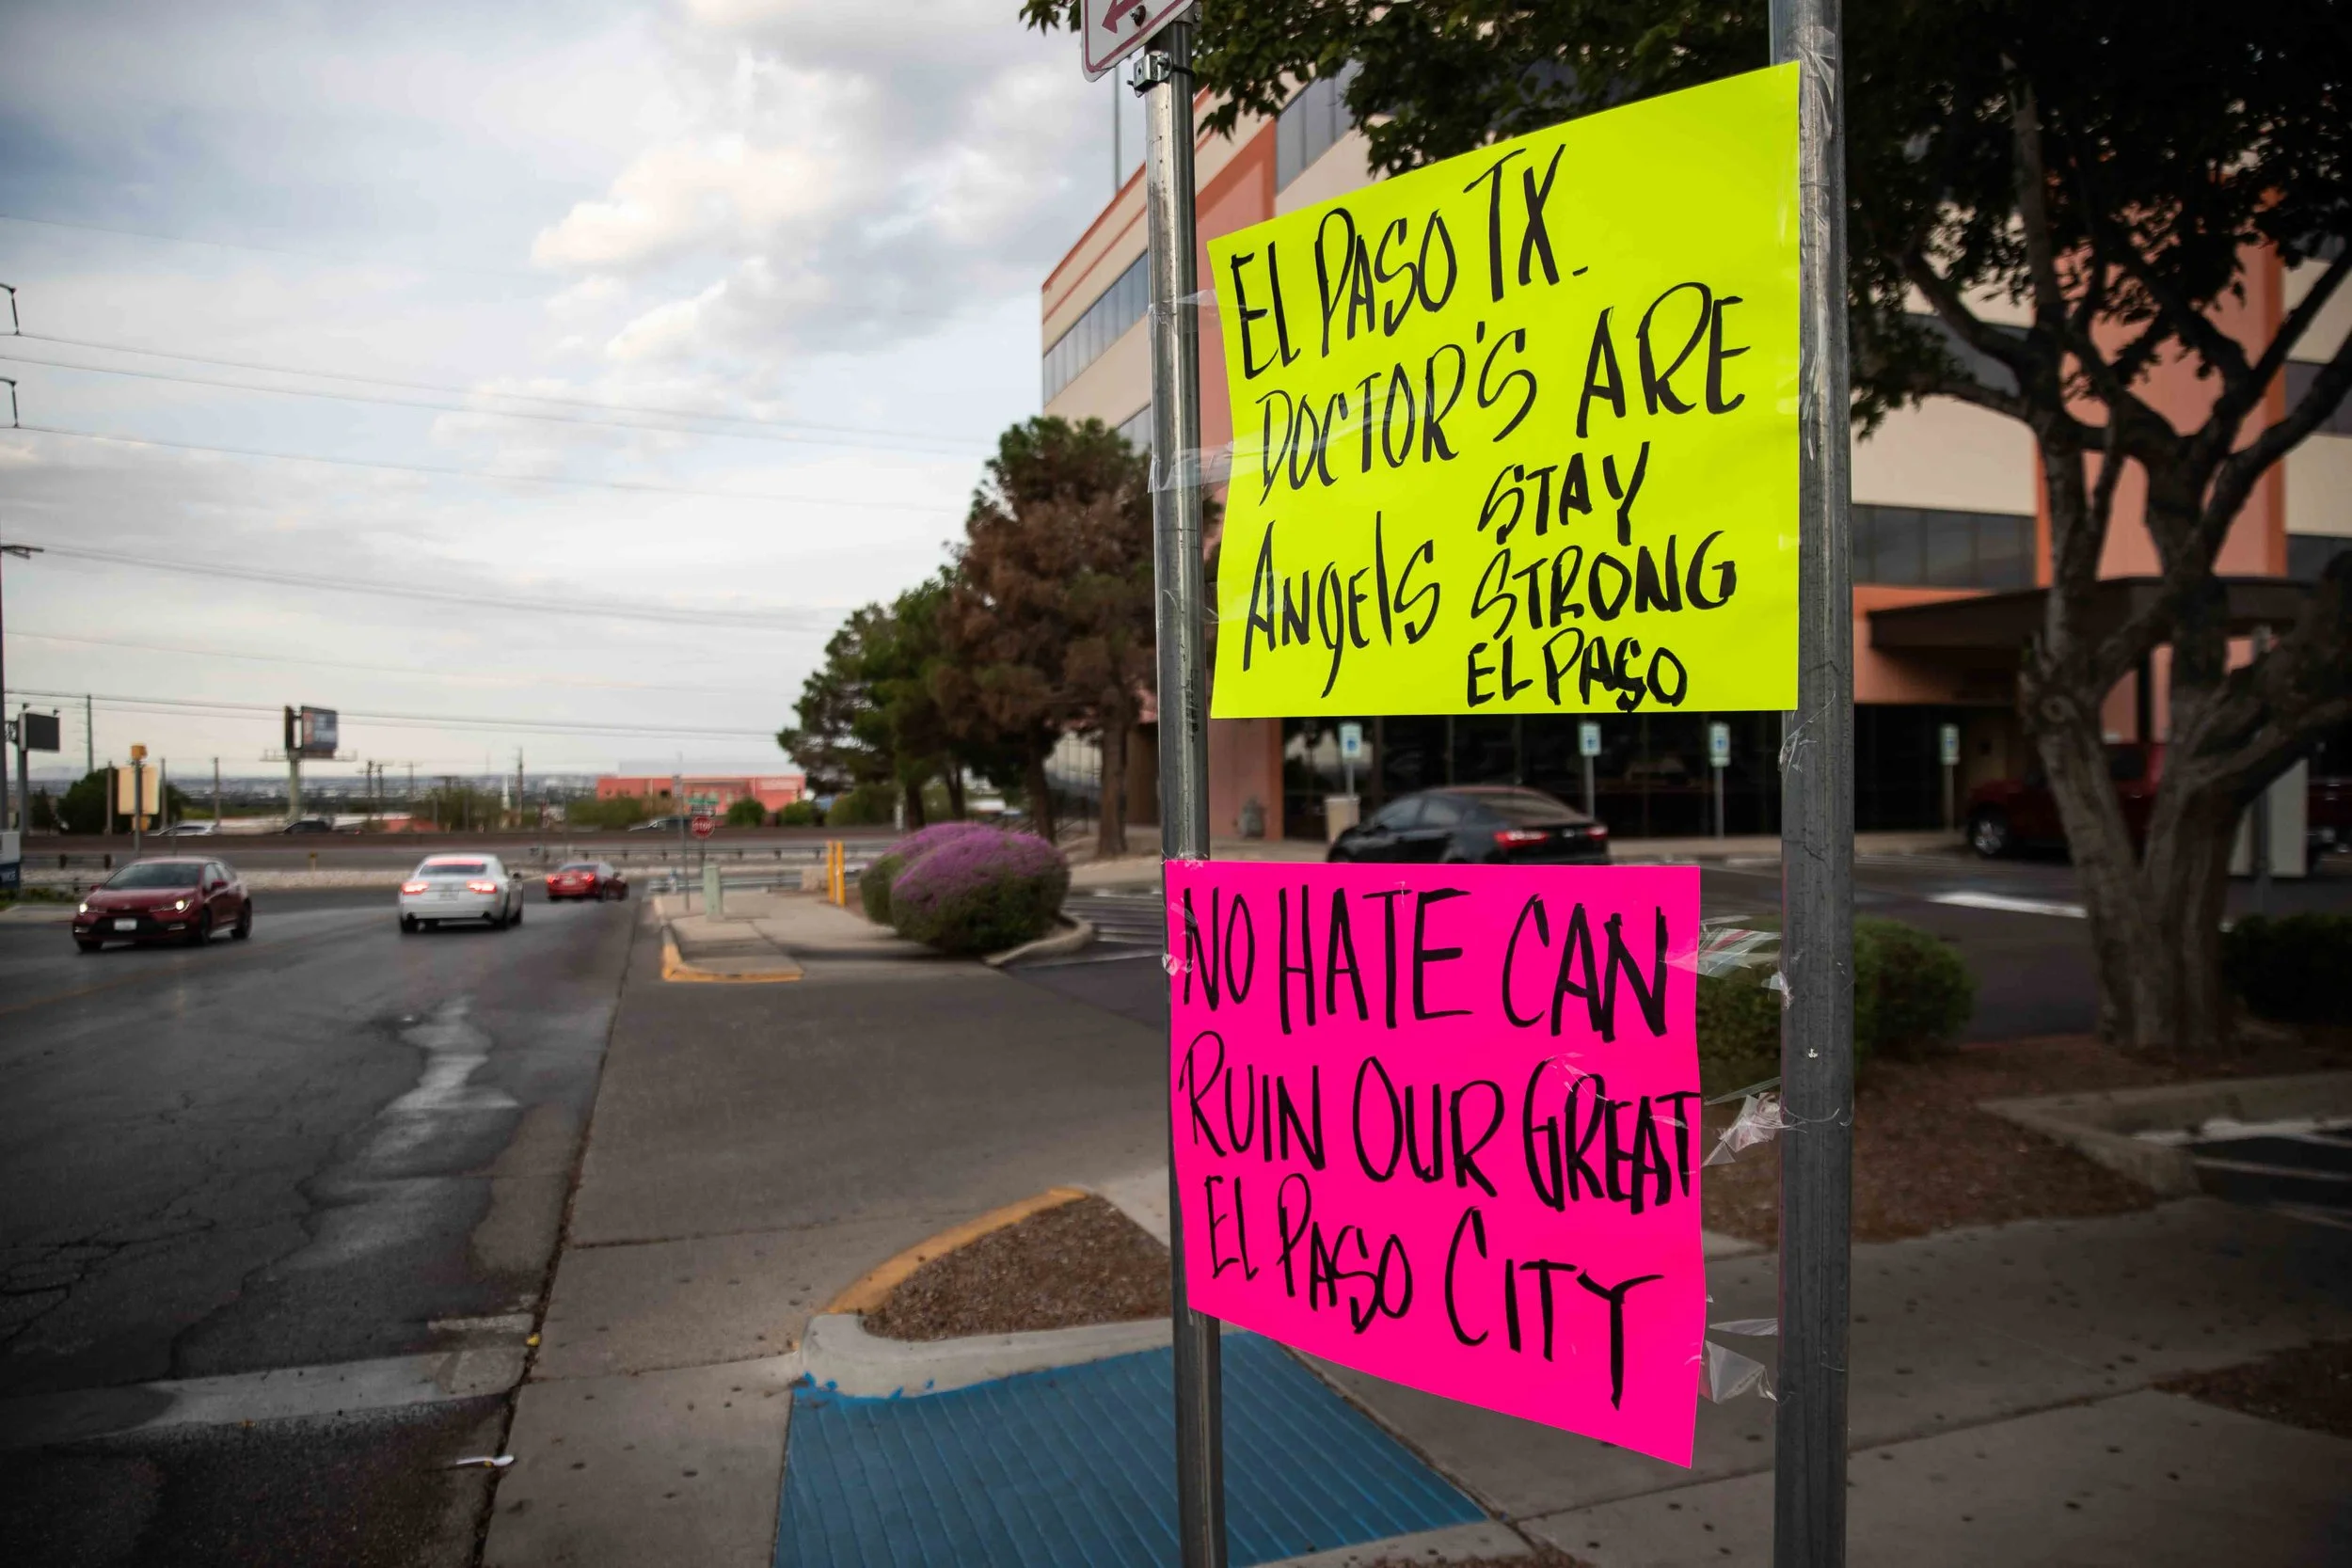 El PASO TX.
DOCTOR'S ARE
ANgElS STAY
STRONG
EL PASO
NO HATE CAN
RUIN OUR GREAT
El PASO CITY
STOP